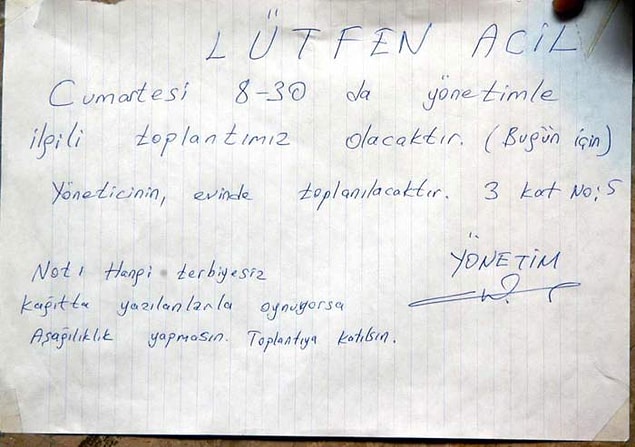 LÜTFEN ACİL
Cumartesi 8-30 da yönetimle
ilgili toplantımız olacaktır. (Bugün için)
Yöneticinin, evinde toplanılacaktır. 3 kat No: 5
YÖNETİM
Not: Hangi terbiyesiz
kağıtta yazılanlarla oynuyorsa
Aşağılıklık yapmasın. Toplantıya katılsın.